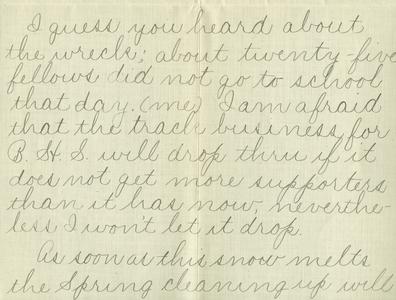 I guess you heard about
the wreck; about twenty-five
fellows did not go to school
that day. (me) I am afraid
that the track business for
B. H. S. will drop thru if it
does not get more supporters
than it has now, neverthe-
less I won't let it drop.
As soon as this snow melts
the Spring cleaning up will